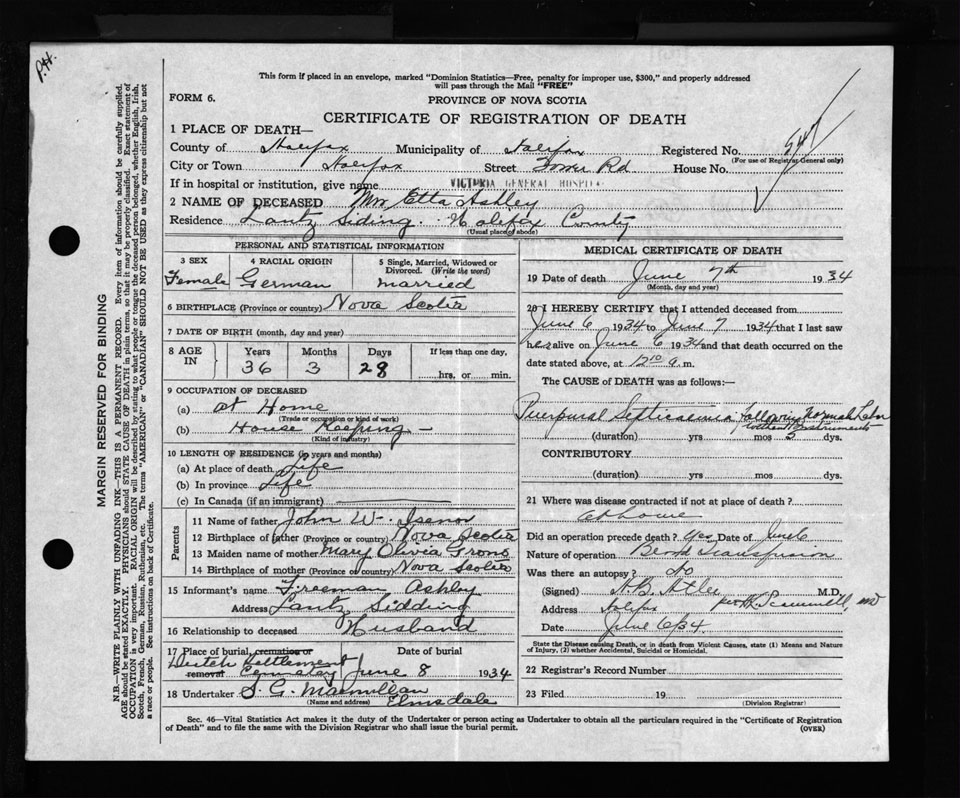 P.H.
This form if placed in an envelope, marked "Dominion Statistics—Free, penalty for improper use, $300," and properly addressed
will pass through the Mail "FREE"
FORM 6.
PROVINCE OF NOVA SCOTIA
CERTIFICATE OF REGISTRATION OF DEATH
1 PLACE OF DEATH—
County of Halifax Municipality of Halifax Registered No.
(For use of Registrar General only)
City or Town Halifax Street Tower Rd House No.
If in hospital or institution, give name VICTORIA GENERAL HOSPITAL
2 NAME OF DECEASED Mrs Etta Ashley
Residence Lantz Siding. Halifax County
(Usual place of abode)
PERSONAL AND STATISTICAL INFORMATION
3 SEX 4 RACIAL ORIGIN 5 Single, Married, Widowed or Divorced. (Write the word)
Female German married
6 BIRTHPLACE (Province or country) Nova Scotia
7 DATE OF BIRTH (month, day and year)
8 AGE IN Years Months Days If less than one day,
36 3 28 hrs. or min.
9 OCCUPATION OF DECEASED
(a) at Home
(Trade or occupation or kind of work)
(b) House Keeping
(Kind of industry)
10 LENGTH OF RESIDENCE (in years and months)
(a) At place of death Life
(b) In province Life
(c) In Canada (if an immigrant)
Parents
11 Name of father John W. Isenor
12 Birthplace of father (Province or country) Nova Scotia
13 Maiden name of mother Mary Olivia Grono
14 Birthplace of mother (Province or country) Nova Scotia
15 Informant's name Freeman Ashley
Address Lantz Sidding
16 Relationship to deceased Husband
17 Place of burial, cremation or removal Date of burial
Dutch Settlement Cemetery June 8 1934
18 Undertaker S. G. Macmillan
(Name and address) Elmsdale
MEDICAL CERTIFICATE OF DEATH
19 Date of death June 7th 1934
(Month, day and year)
20 I HEREBY CERTIFY that I attended deceased from
June 6 1934 to June 7 1934 that I last saw
her alive on June 6 1934 and that death occurred on the
date stated above, at 12 10 a. m.
The CAUSE of DEATH was as follows:
Puerperal Septicaemia following Normal Labor
without Instruments
(duration) yrs mos 5 dys.
CONTRIBUTORY
(duration) yrs mos dys.
21 Where was disease contracted if not at place of death?
at home
Did an operation precede death? Yes Date of June 6
Nature of operation Blood Transfusion
Was there an autopsy? No
(Signed) H.B. Atlee M.D.
Address Halifax
Date June 6/34.
State the Disease causing Death, or in death from Violent Causes, state (1) Means and Nature
of Injury, (2) whether Accidental, Suicidal or Homicidal.
22 Registrar's Record Number
23 Filed 19
(Division Registrar)
Sec. 46—Vital Statistics Act makes it the duty of the Undertaker or person acting as Undertaker to obtain all the particulars required in the "Certificate of Registration
of Death" and to file the same with the Division Registrar who shall issue the burial permit.
(OVER)
MARGIN RESERVED FOR BINDING
N.B.—WRITE PLAINLY WITH UNFADING INK—THIS IS A PERMANENT RECORD. Every item of information should be carefully supplied.
AGE should be stated EXACTLY. PHYSICIANS should STATE CAUSE OF DEATH in plain terms, so that it may be properly classified. Exact statement of
OCCUPATION is very important. RACIAL ORIGIN will be described by stating to what people or tongue the deceased person belonged, whether English, Irish,
Scotch, French, German, Russian, Ruthenian, etc. The terms "AMERICAN" or "CANADIAN" SHOULD NOT BE USED as they express citizenship but not
a race or people. See instructions on back of Certificate.